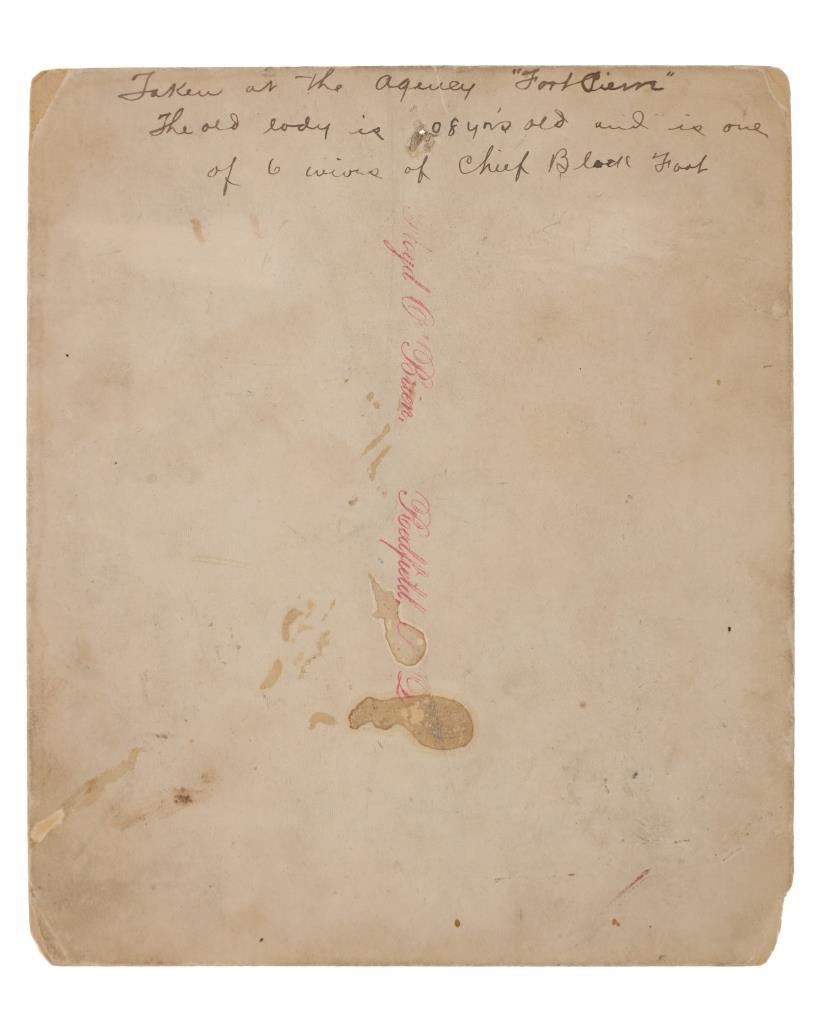 Taken at the Agency "Fort Pierre"
The old lady is 108 yrs old and is one
of 6 wives of Chief Black Foot
Floyd O'Brien, Redfield, S D